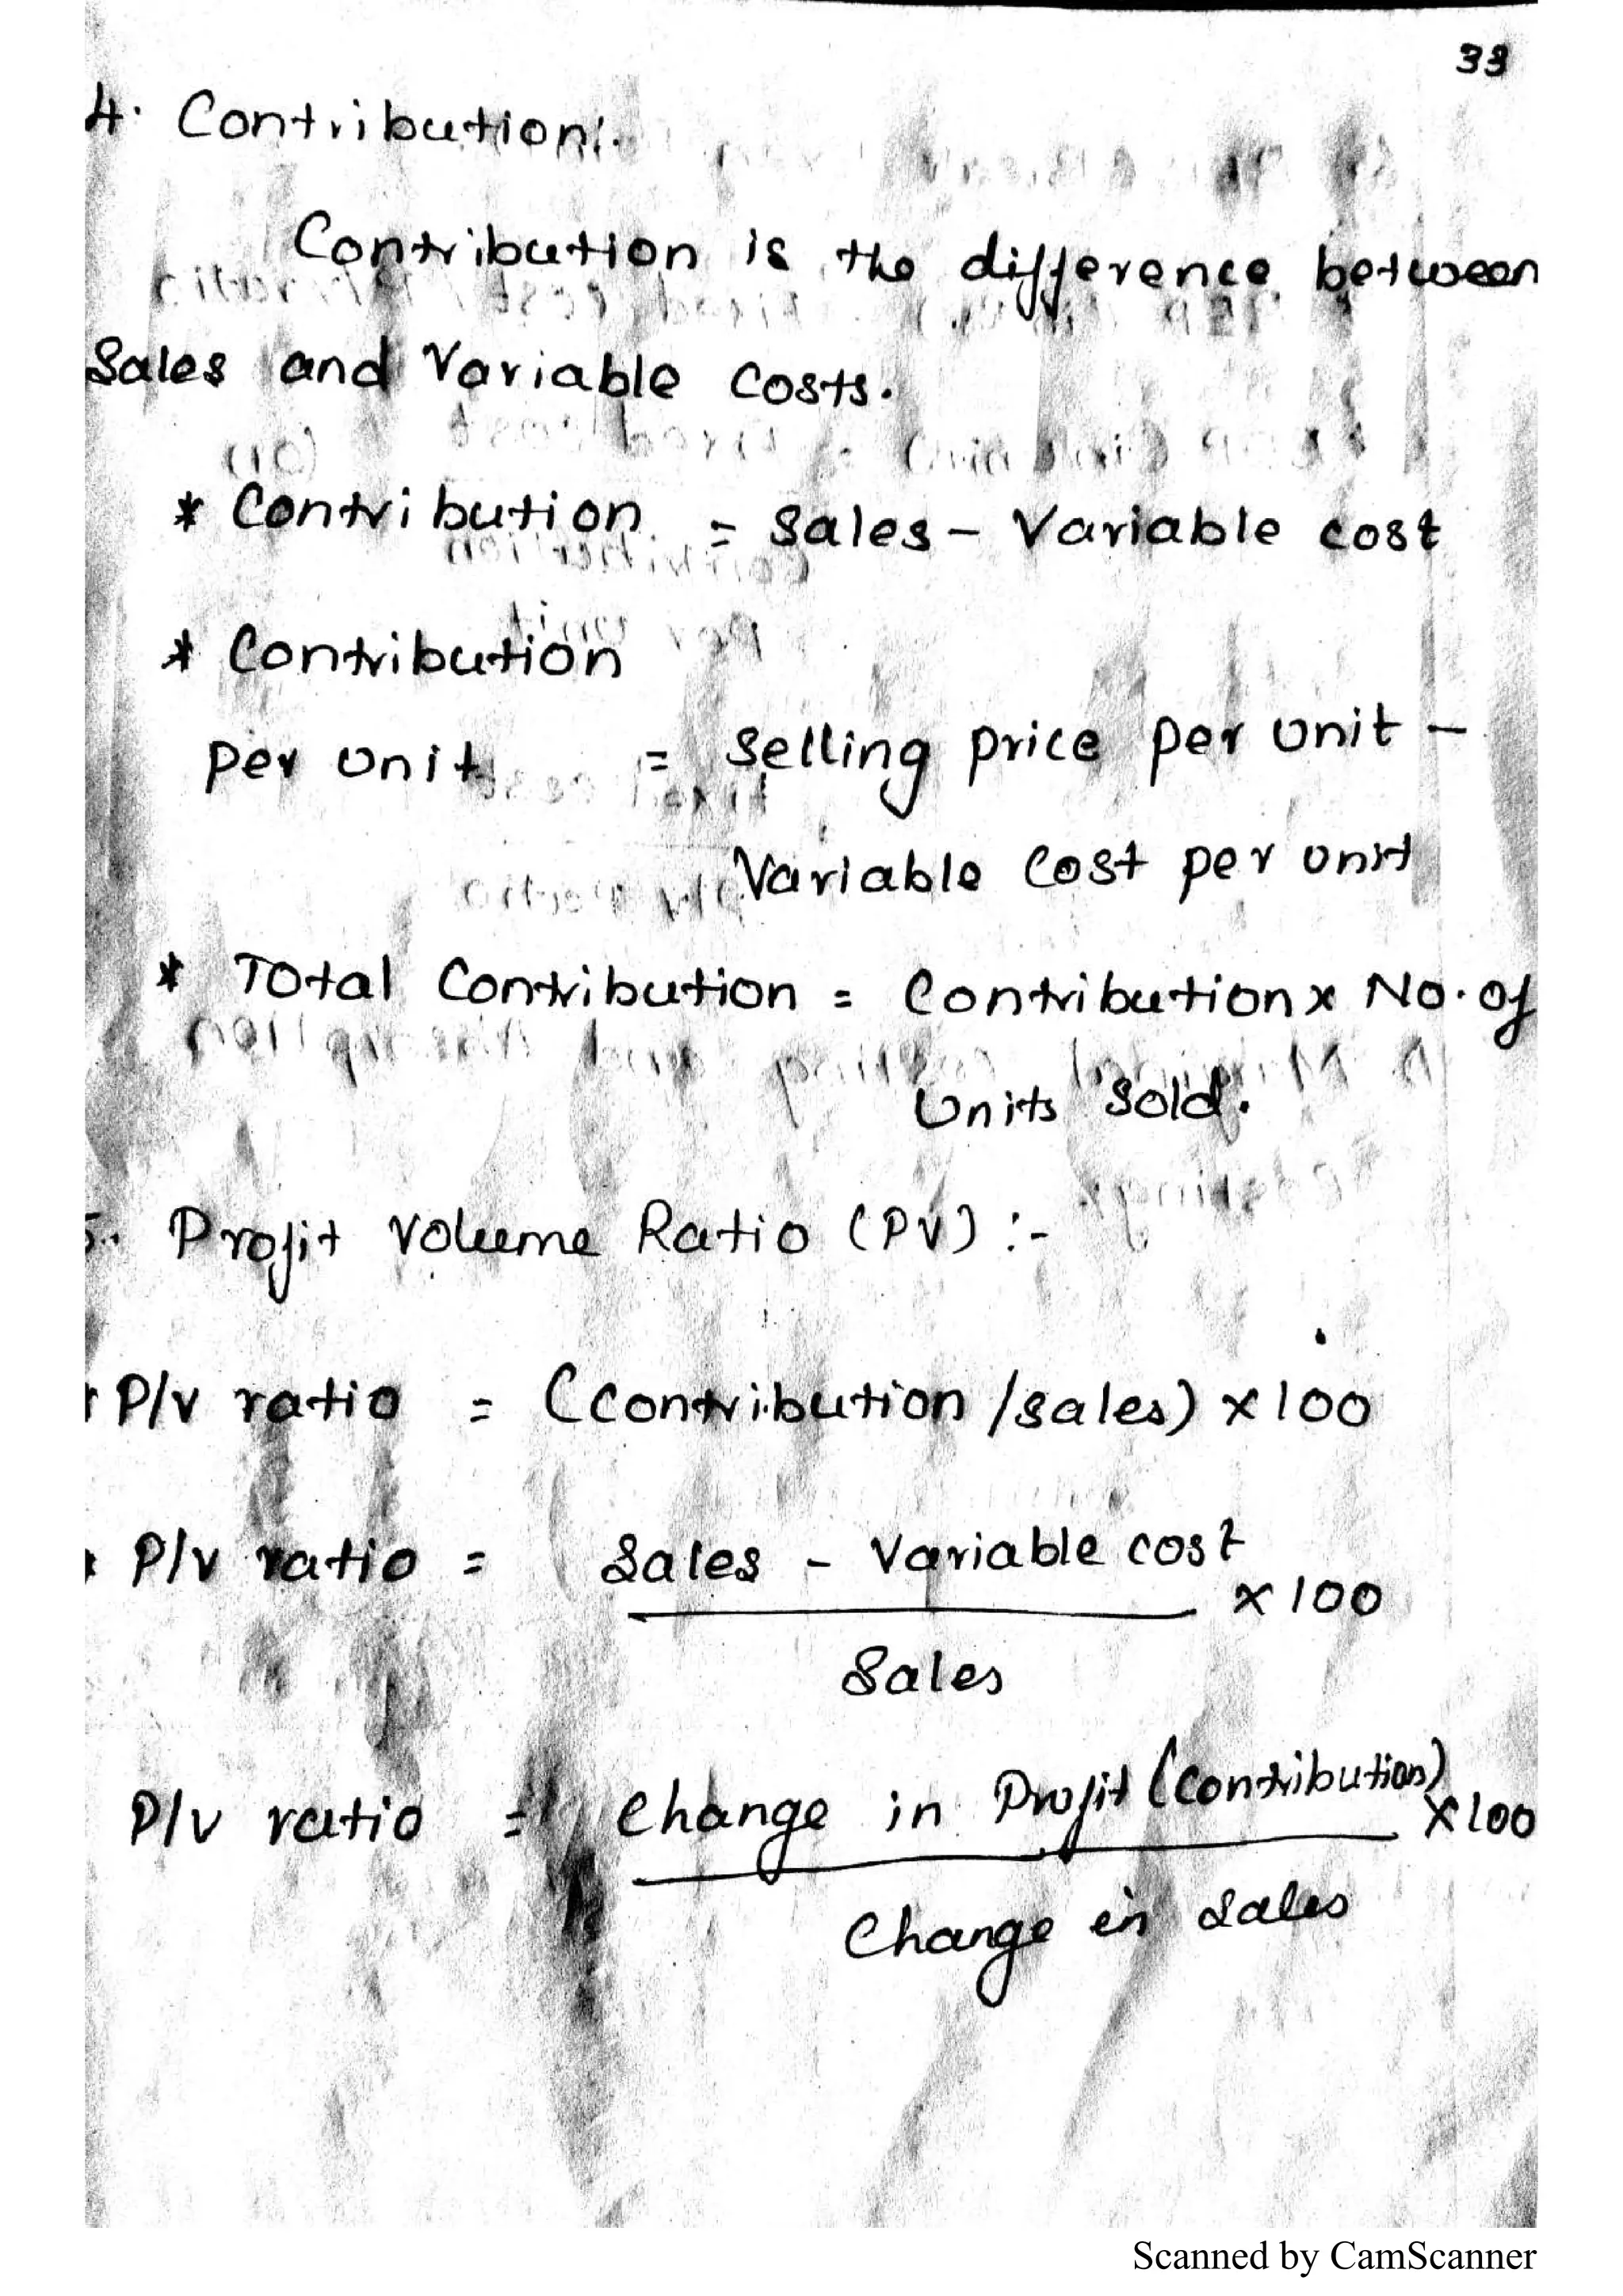 33
4. Contribution:-
Contribution is the difference between
Sales and Variable Costs.
* Contribution = Sales - Variable cost
* Contribution
per unit = Selling price per unit -
Variable Cost per unit
* Total Contribution = Contribution x No. of
Units Sold.
5. Profit Volume Ratio (PV) :-
* P/V ratio = (Contribution /sales) x 100
* P/V ratio = Sales - Variable cost x 100
Sales
P/V ratio = Change in Profit (Contribution) x 100
Change in Sales
Scanned by CamScanner